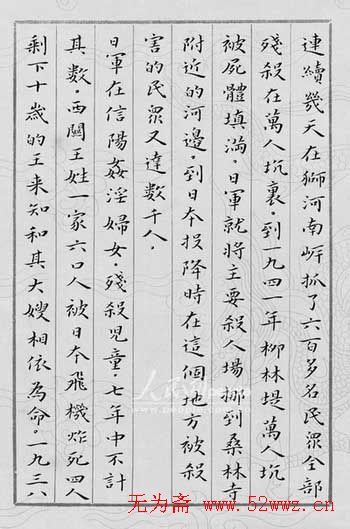 連續幾天在獅河南岸抓了六百多名民眾全部
殘殺在萬人坑裏.到一九四一年柳林堤萬人坑
被屍體填滿.日軍就將主要殺人場挪到桑林寺
附近的河邊.到日本投降時在這個地方被殺
害的民眾又達數千人.
日軍在信陽姦淫婦女.殘殺児童.七年中不計
其數.西關王姓一家六口人被日本飛機炸死四人
剩下十歲的王来知和其大嫂相依為命.一九三八
人民网
无为斋 - www.52wwz.cn